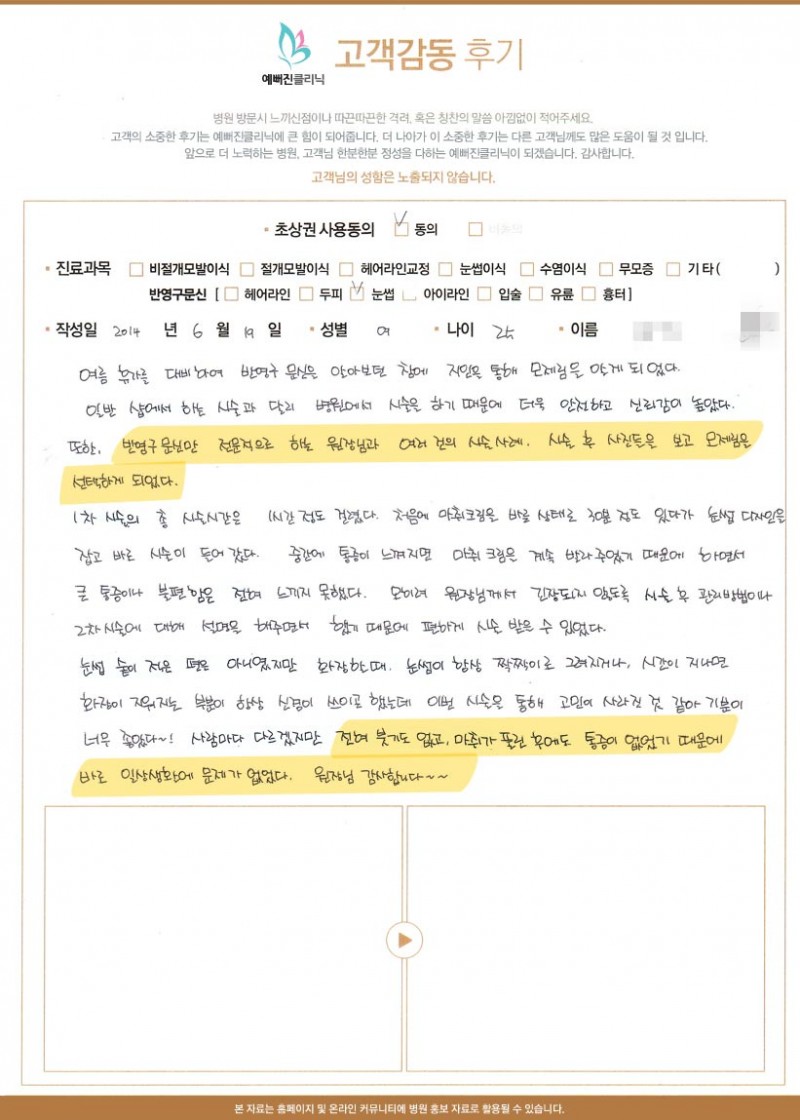 예뻐진클리닉
고객감동 후기
병원 방문시 느끼신점이나 따끈따끈한 격려, 혹은 칭찬의 말씀 아낌없이 적어주세요.
고객의 소중한 후기는 예뻐진클리닉에 큰 힘이 되어줍니다. 더 나아가 이 소중한 후기는 다른 고객님께도 많은 도움이 될 것 입니다.
앞으로 더 노력하는 병원, 고객님 한분한분 정성을 다하는 예뻐진클리닉이 되겠습니다. 감사합니다.
고객님의 성함은 노출되지 않습니다.
• 초상권 사용동의 동의
• 진료과목 비절개모발이식 절개모발이식 헤어라인교정 눈썹이식 수염이식 무모증 기타( )
반영구문신 [ 헤어라인 두피 눈썹 아이라인 입술 유륜 흉터 ]
• 작성일 2014 년 6 월 19 일 • 성별 여 • 나이 25 • 이름
여름 휴가를 대비하여 반영구 문신을 알아보던 참에 지인을 통해 모제림을 알게 되었다.
일반 샵에서 하는 시술과 달리 병원에서 시술을 하기 때문에 더욱 안전하고 신뢰감이 높았다.
또한, 반영구문신만 전문적으로 하는 원장님과 여러 건의 시술사례, 시술 후 사진들을 보고 모제림을
선택하게 되었다.
1차 시술의 총 시술시간은 1시간 정도 걸렸다. 처음에 마취크림을 바른 상태로 30분 정도 있다가 눈썹 디자인을
잡고 바로 시술이 들어갔다. 중간에 통증이 느껴지면 마취크림을 계속 발라주었기 때문에 하면서
큰 통증이나 불편함은 전혀 느끼지 못했다. 오히려 원장님께서 긴장되지 않도록 시술 후 관리방법이나
2차시술에 대해 설명을 해주면서 했기 때문에 편하게 시술 받을 수 있었다.
눈썹 숱이 적은 편은 아니였지만 화장할때, 눈썹이 항상 짝짝이로 그려지거나, 시간이 지나면
화장이 지워지는 부분이 항상 신경이 쓰이고 했는데 이번 시술을 통해 고민이 사라진 것 같아 기분이
너무 좋았다~! 사람마다 다르겠지만 전혀 붓기도 없고, 마취가 풀린 후에도 통증이 없었기 때문에
바로 일상생활에 문제가 없었다. 원장님 감사합니다~~
본 자료는 홈페이지 및 온라인 커뮤니티에 병원 홍보 자료로 활용될 수 있습니다.